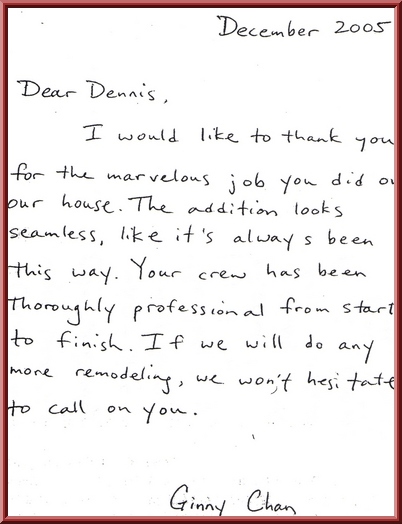 December 2005
Dear Dennis,
I would like to thank you
for the marvelous job you did on
our house. The addition looks
seamless, like it's always been
this way. Your crew has been
thoroughly professional from start
to finish. If we will do any
more remodeling, we won't hesitate
to call on you.
Ginny Chan